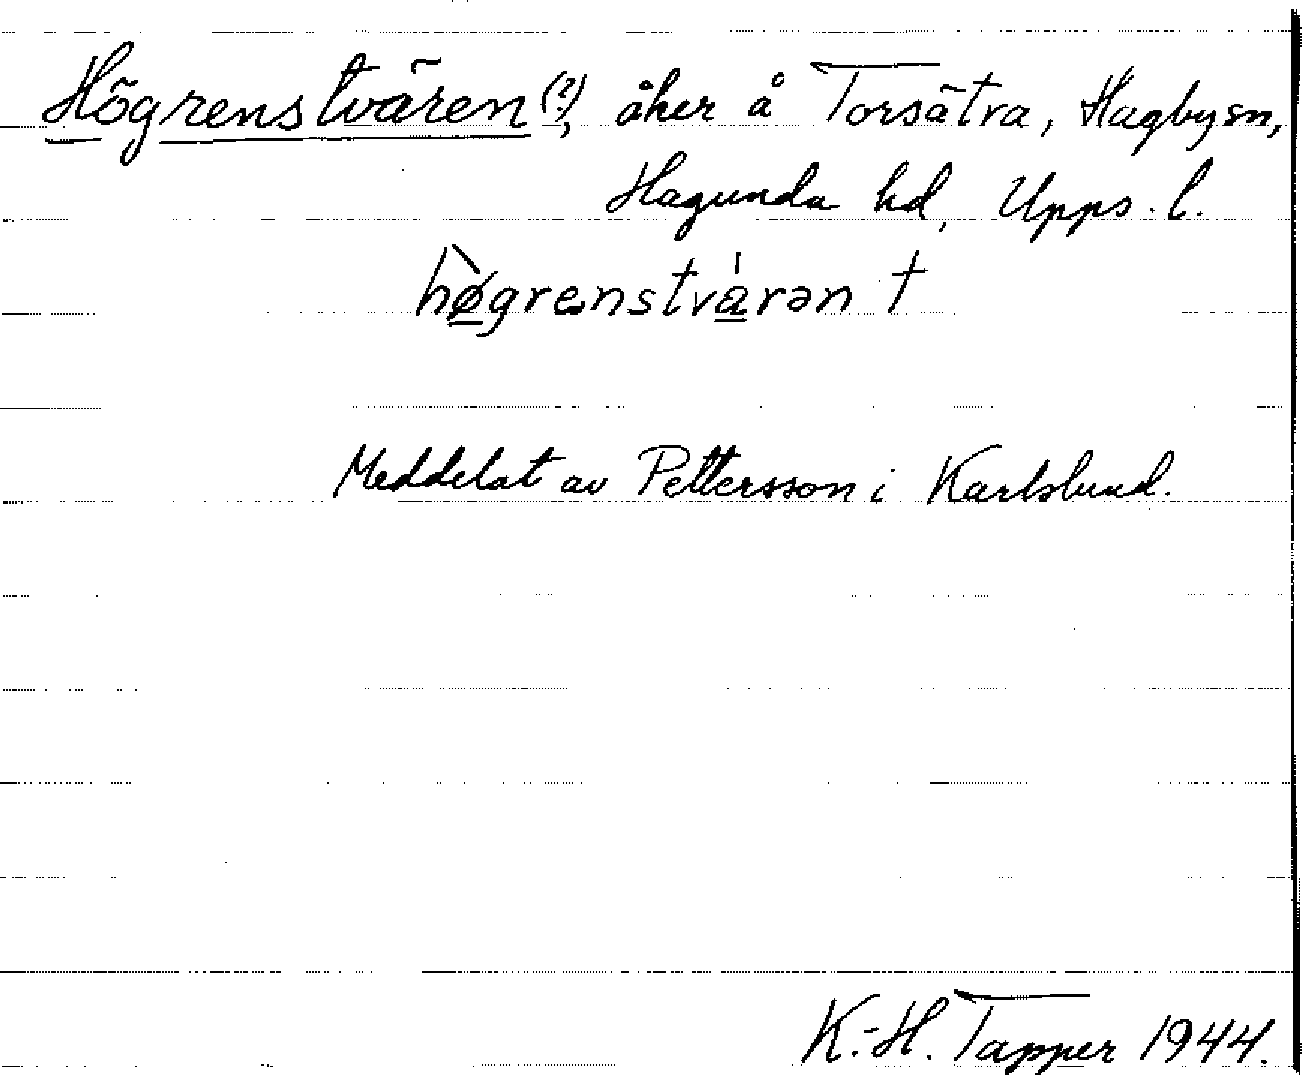 Högrenstvären (?), åker å Torsätra, Hagby sn,
Hagunda hd, Upps. l.
hø̀grenstvárən †
Meddelat av Pettersson i Karlslund.
K.-H. Tapper 1944.